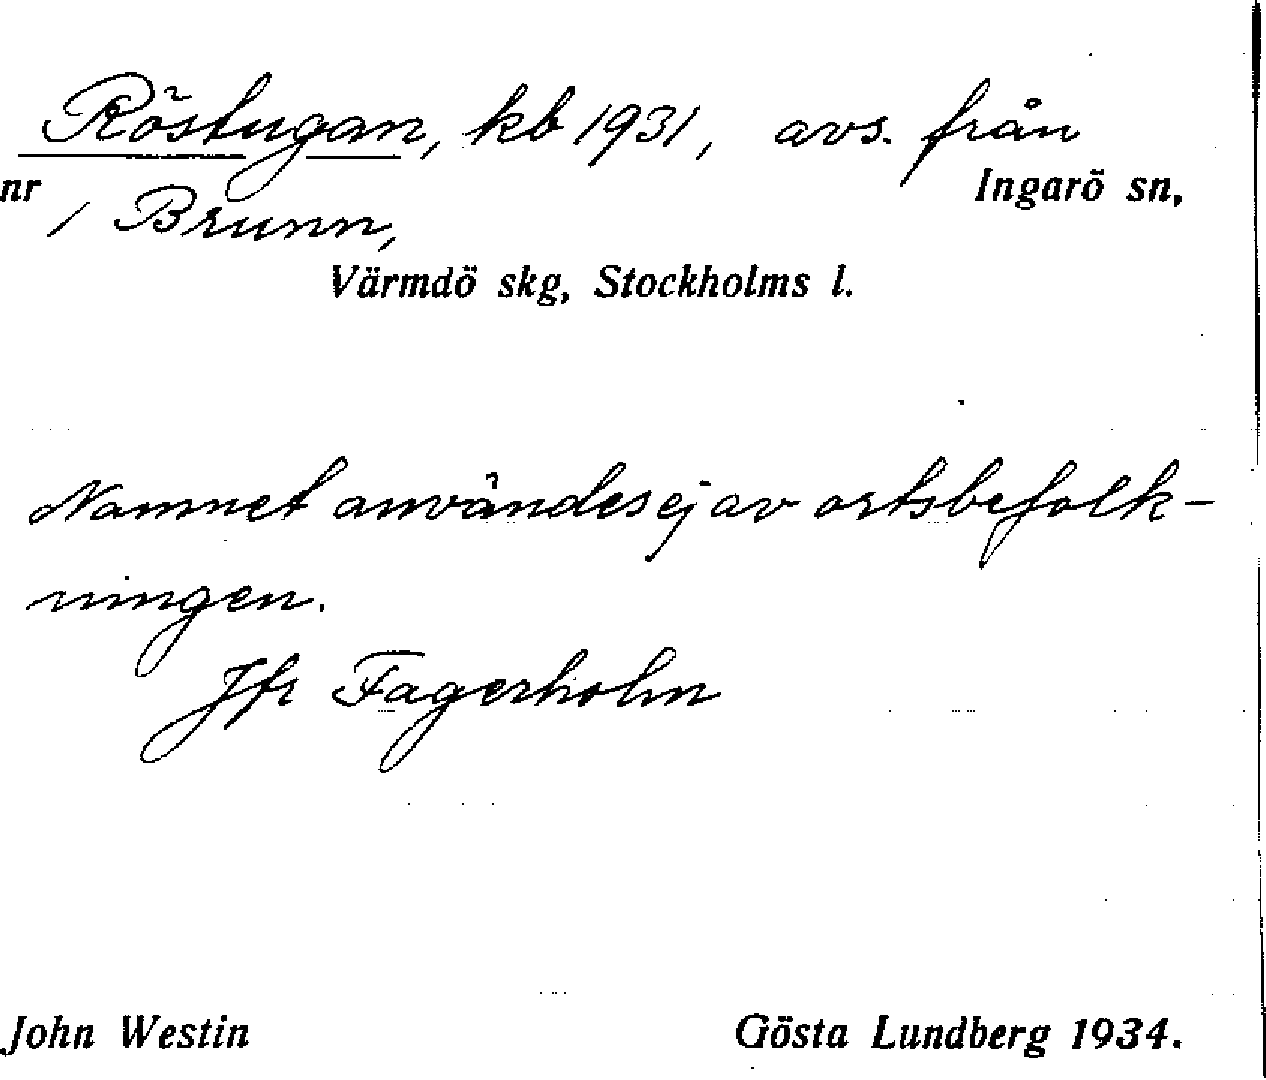 Röstugan, kb 1931, avs. från
nr 1 Brunn, Ingarö sn,
Värmdö skg, Stockholms l.
Namnet användes ej av ortsbefolk-
ningen.
Jfr Fagerholm
John Westin Gösta Lundberg 1934.